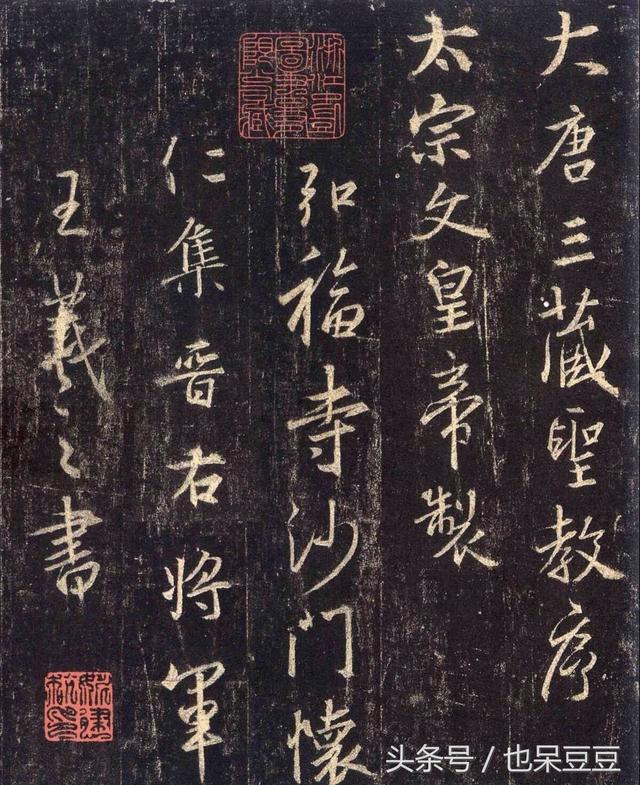 大唐三藏聖教序
太宗文皇帝製
弘福寺沙門懷
仁集晋右將軍
王羲之書
头条号 / 也呆豆豆